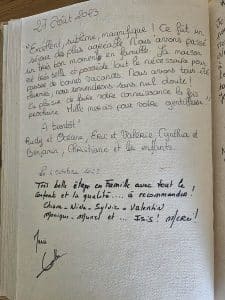 27 Août 2023
"Excellent, sublime, magnifique ! Ce fût un
séjour des plus agréable. Nous avons passé
un très bon moment en famille. La maison
est très belle et possède tout le nécessaire pour
passer de bonnes vacances. Nous avons tous été
, nous reviendrons sans nul doute !
Au plaisir de faire votre connaissance la fois
prochaine. Mille mercis pour votre gentillesse"
A bientôt !
Rudy et Océane, Eric et Valérie, Cynthia et
Benjamin, Christiane et les enfants.
Le 1 octobre 2023
Très belle étape en famille avec tout le
confort et la qualité.... à recommander !
Chiara - Nina - Sylvie - Valentin
Monique - Muriel et ... Isis ! Merci !